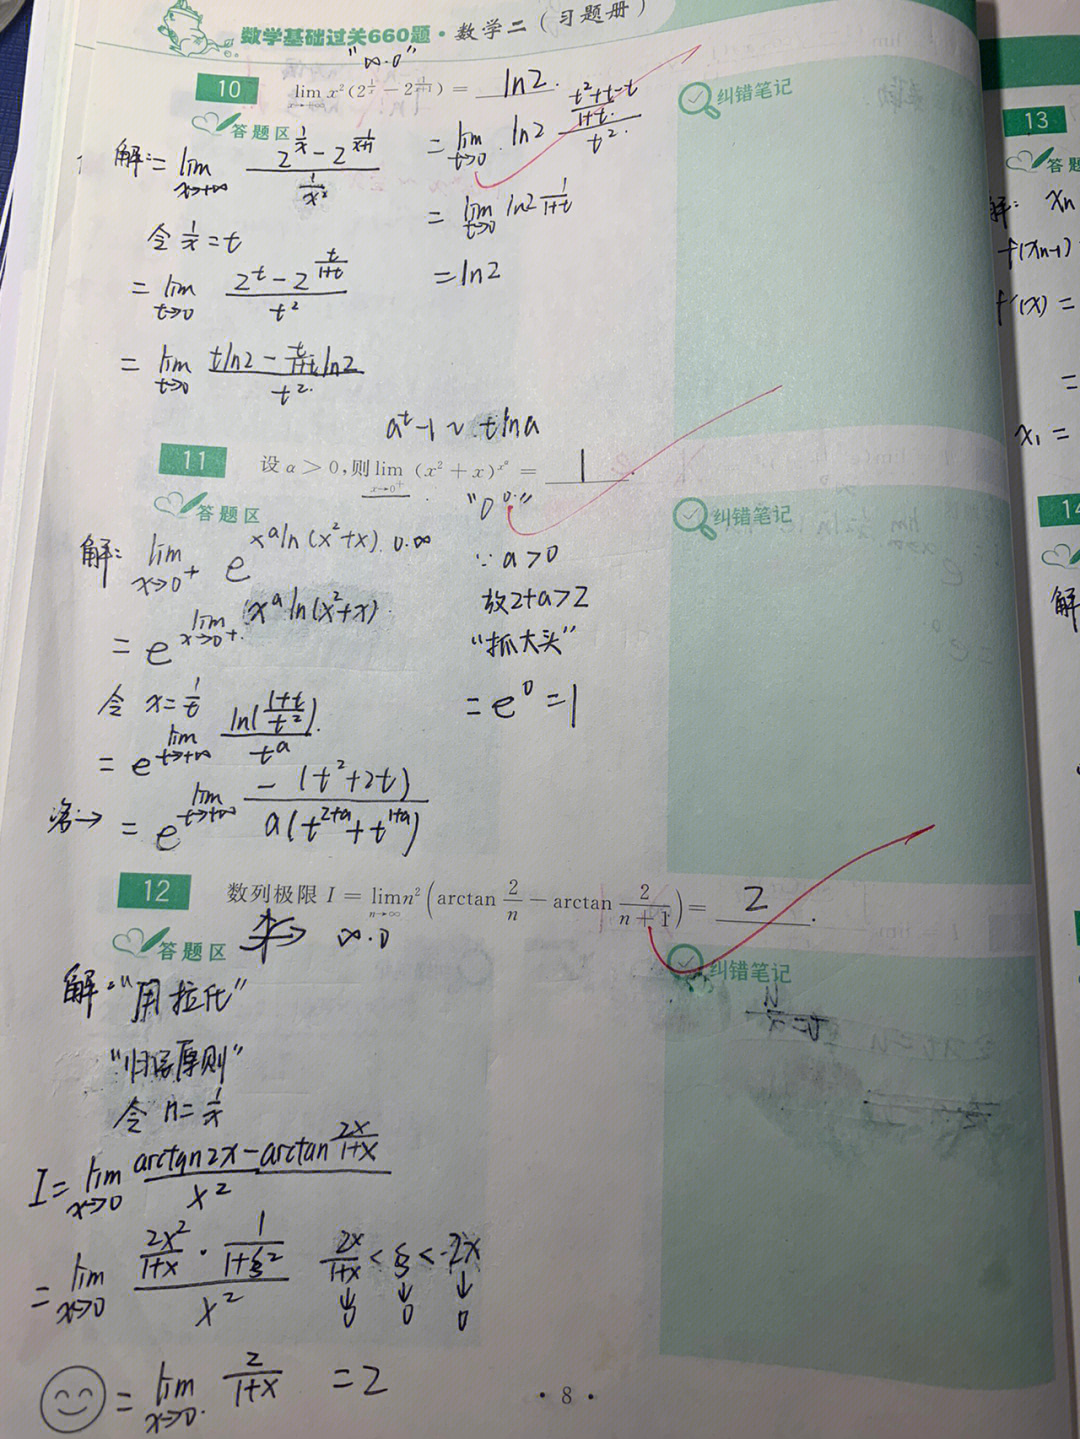 数学基础过关660题·数学二(习题册)
"∞·0"
10 lim x²(2^{1/x} − 2^{1/(x+1)}) = ln2.
答题区
纠错笔记
解:= lim_{x→+∞} (2^{1/x} − 2^{1/(x+1)}) / (1/x²)
令 1/x = t
= lim_{t→0} (2^t − 2^{t/(1+t)}) / t²
= lim_{t→0} (tln2 − t/(1+t) ln2) / t².
a^t−1 ~ tlna
= lim_{t→0} ln2 ((t²+t−t)/(1+t)) / t².
= lim_{t→0} ln2 1/(1+t)
= ln2
11 设 α > 0,则 lim_{x→0⁺} (x² + x)^{x^α} = 1.
答题区
纠错笔记
"0⁰"
解: lim_{x→0+} e^{x^a ln(x²+x)} 0·∞
= e^{lim_{x→0+} x^a ln(x²+x)}
令 x = 1/t
= e^{lim_{t→+∞} ln((1+t)/t²) / t^a}
洛→ = e^{lim_{t→+∞} −(t²+2t) / a(t^{2+a}+t^{1+a})}
∵a>0
故2+a>2
"抓大头"
= e⁰ = 1
12 数列极限 I = lim_{n→∞} n²(arctan 2/n − arctan 2/(n+1)) = 2.
答题区
∞·0
纠错笔记
解:"用拉氏"
"归结原则"
令 n = 1/x
I = lim_{x→0} (arctan2x − arctan 2x/(1+x)) / x²
= lim_{x→0} (2x²/(1+x) · 1/(1+ξ²)) / x²
2x/(1+x) < ξ < 2x
↓ ↓ ↓
0 0 0
= lim_{x→0} 2/(1+x) = 2
· 8 ·
13
答题
解: xn
f(xn-1)
f'(x) =
=
x₁ =
14
解